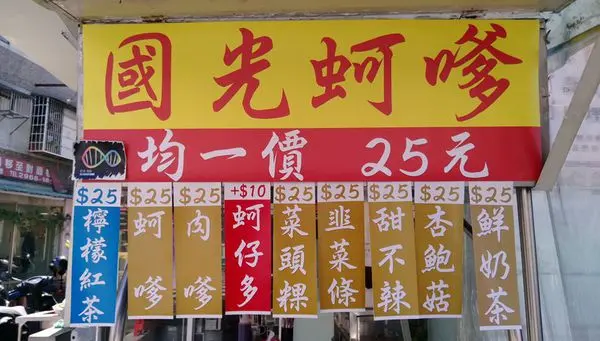 國光蚵嗲
均一價 25元
$25 檸檬紅茶
$25 蚵嗲
$25 肉嗲
+$10 蚵仔多
$25 菜頭粿
$25 韭菜條
$25 甜不辣
$25 杏鮑菇
$25 鮮奶茶